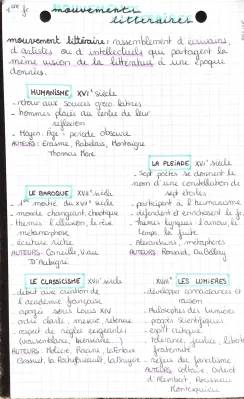 1ère fr
mouvements
littéraires
mouvement littéraire : rassemblement d'écrivains,
d'artistes ou d'intellectuels qui partagent la
même vision de la littérature à une époque
donnée.
HUMANISME XVIe siècle
- retour aux sources gréco latines
- hommes placés au centre de leur
réflexion
- Moyen Âge : période obscure
AUTEURS : Erasme, Rabelais, Montaigne
Thomas More
LA PLEÏADE XVIe siècle
- sept poètes se donnent le
nom d'une constellation de
sept étoiles
- participent à l'humanisme
- défendent et enrichissent le fr.
- thèmes lyriques : l'amour, le
temps, la fuite
- Alexandrins, métaphores
AUTEURS : Ronsard, Du Bellay
LE BAROQUE XVIIe siècle
- 1ère moitié du XVIIe siècle
- monde changeant, chaotique
- thèmes : l'illusion, le rêve
métamorphose
- écriture riche
AUTEURS : Corneille, Viau
D'Aubigné
LE CLASSICISME XVIIe siècle
- début avec création de
l'académie française
- apogée sous Louis XIV
- ordre, clarté, mesure, retenue
- respect de règles exigeantes
(vraisemblance, bienséance...)
AUTEURS : Molière, Racine, La Fontaine
Bossuet, La Rochefoucauld, La Bruyère
XVIIIe LES LUMIÈRES
- développer connaissances et
raison
- Philosophes des lumières
- progrès scientifiques
- esprit critique
- tolérance, justice, liberté
fraternité
- refus du fanatisme
AUTEURS : Voltaire, Diderot
d'Alembert, Rousseau
Montesquieu